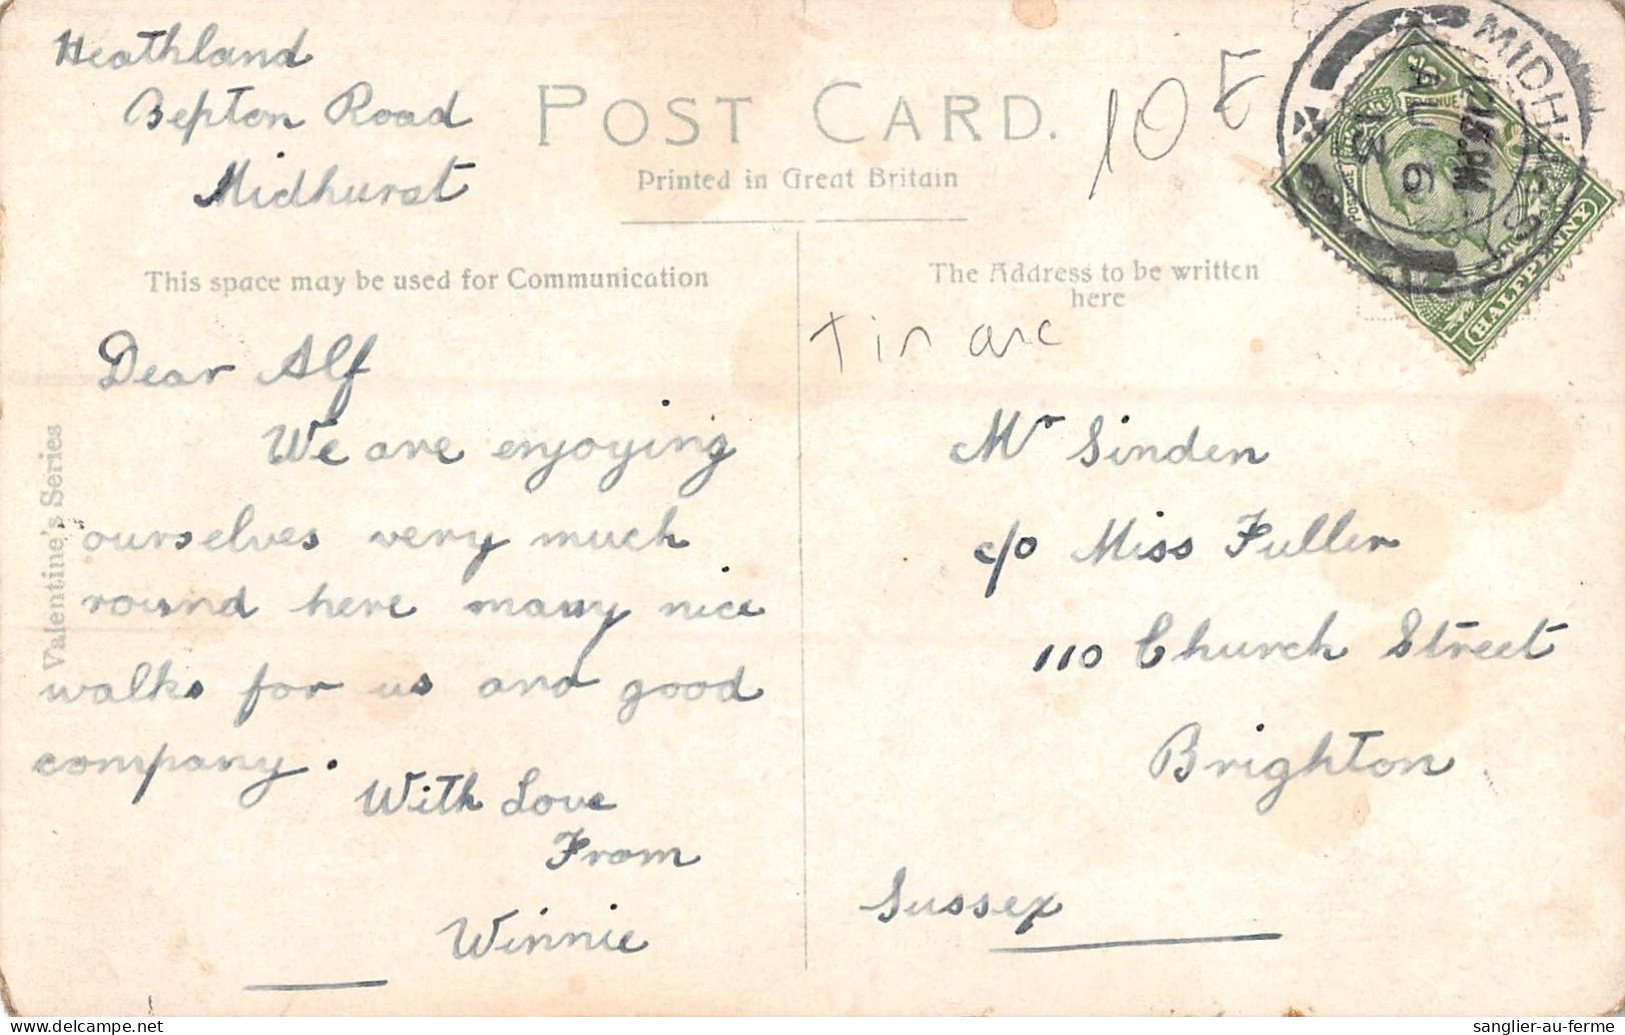 Heathland
Bepton Road
Midhurst
POST CARD.
Printed in Great Britain
10 E
MIDHURST
REVENUE
HALFPENNY
This space may be used for Communication
The Address to be written
here
Valentine's Series
Dear Alf
We are enjoying
ourselves very much
round here many nice
walks for us and good
company.
With Love
From
Winnie
Mr Sinden
c/o Miss Fuller
110 Church Street
Brighton
Sussex
sanglier-au-ferme